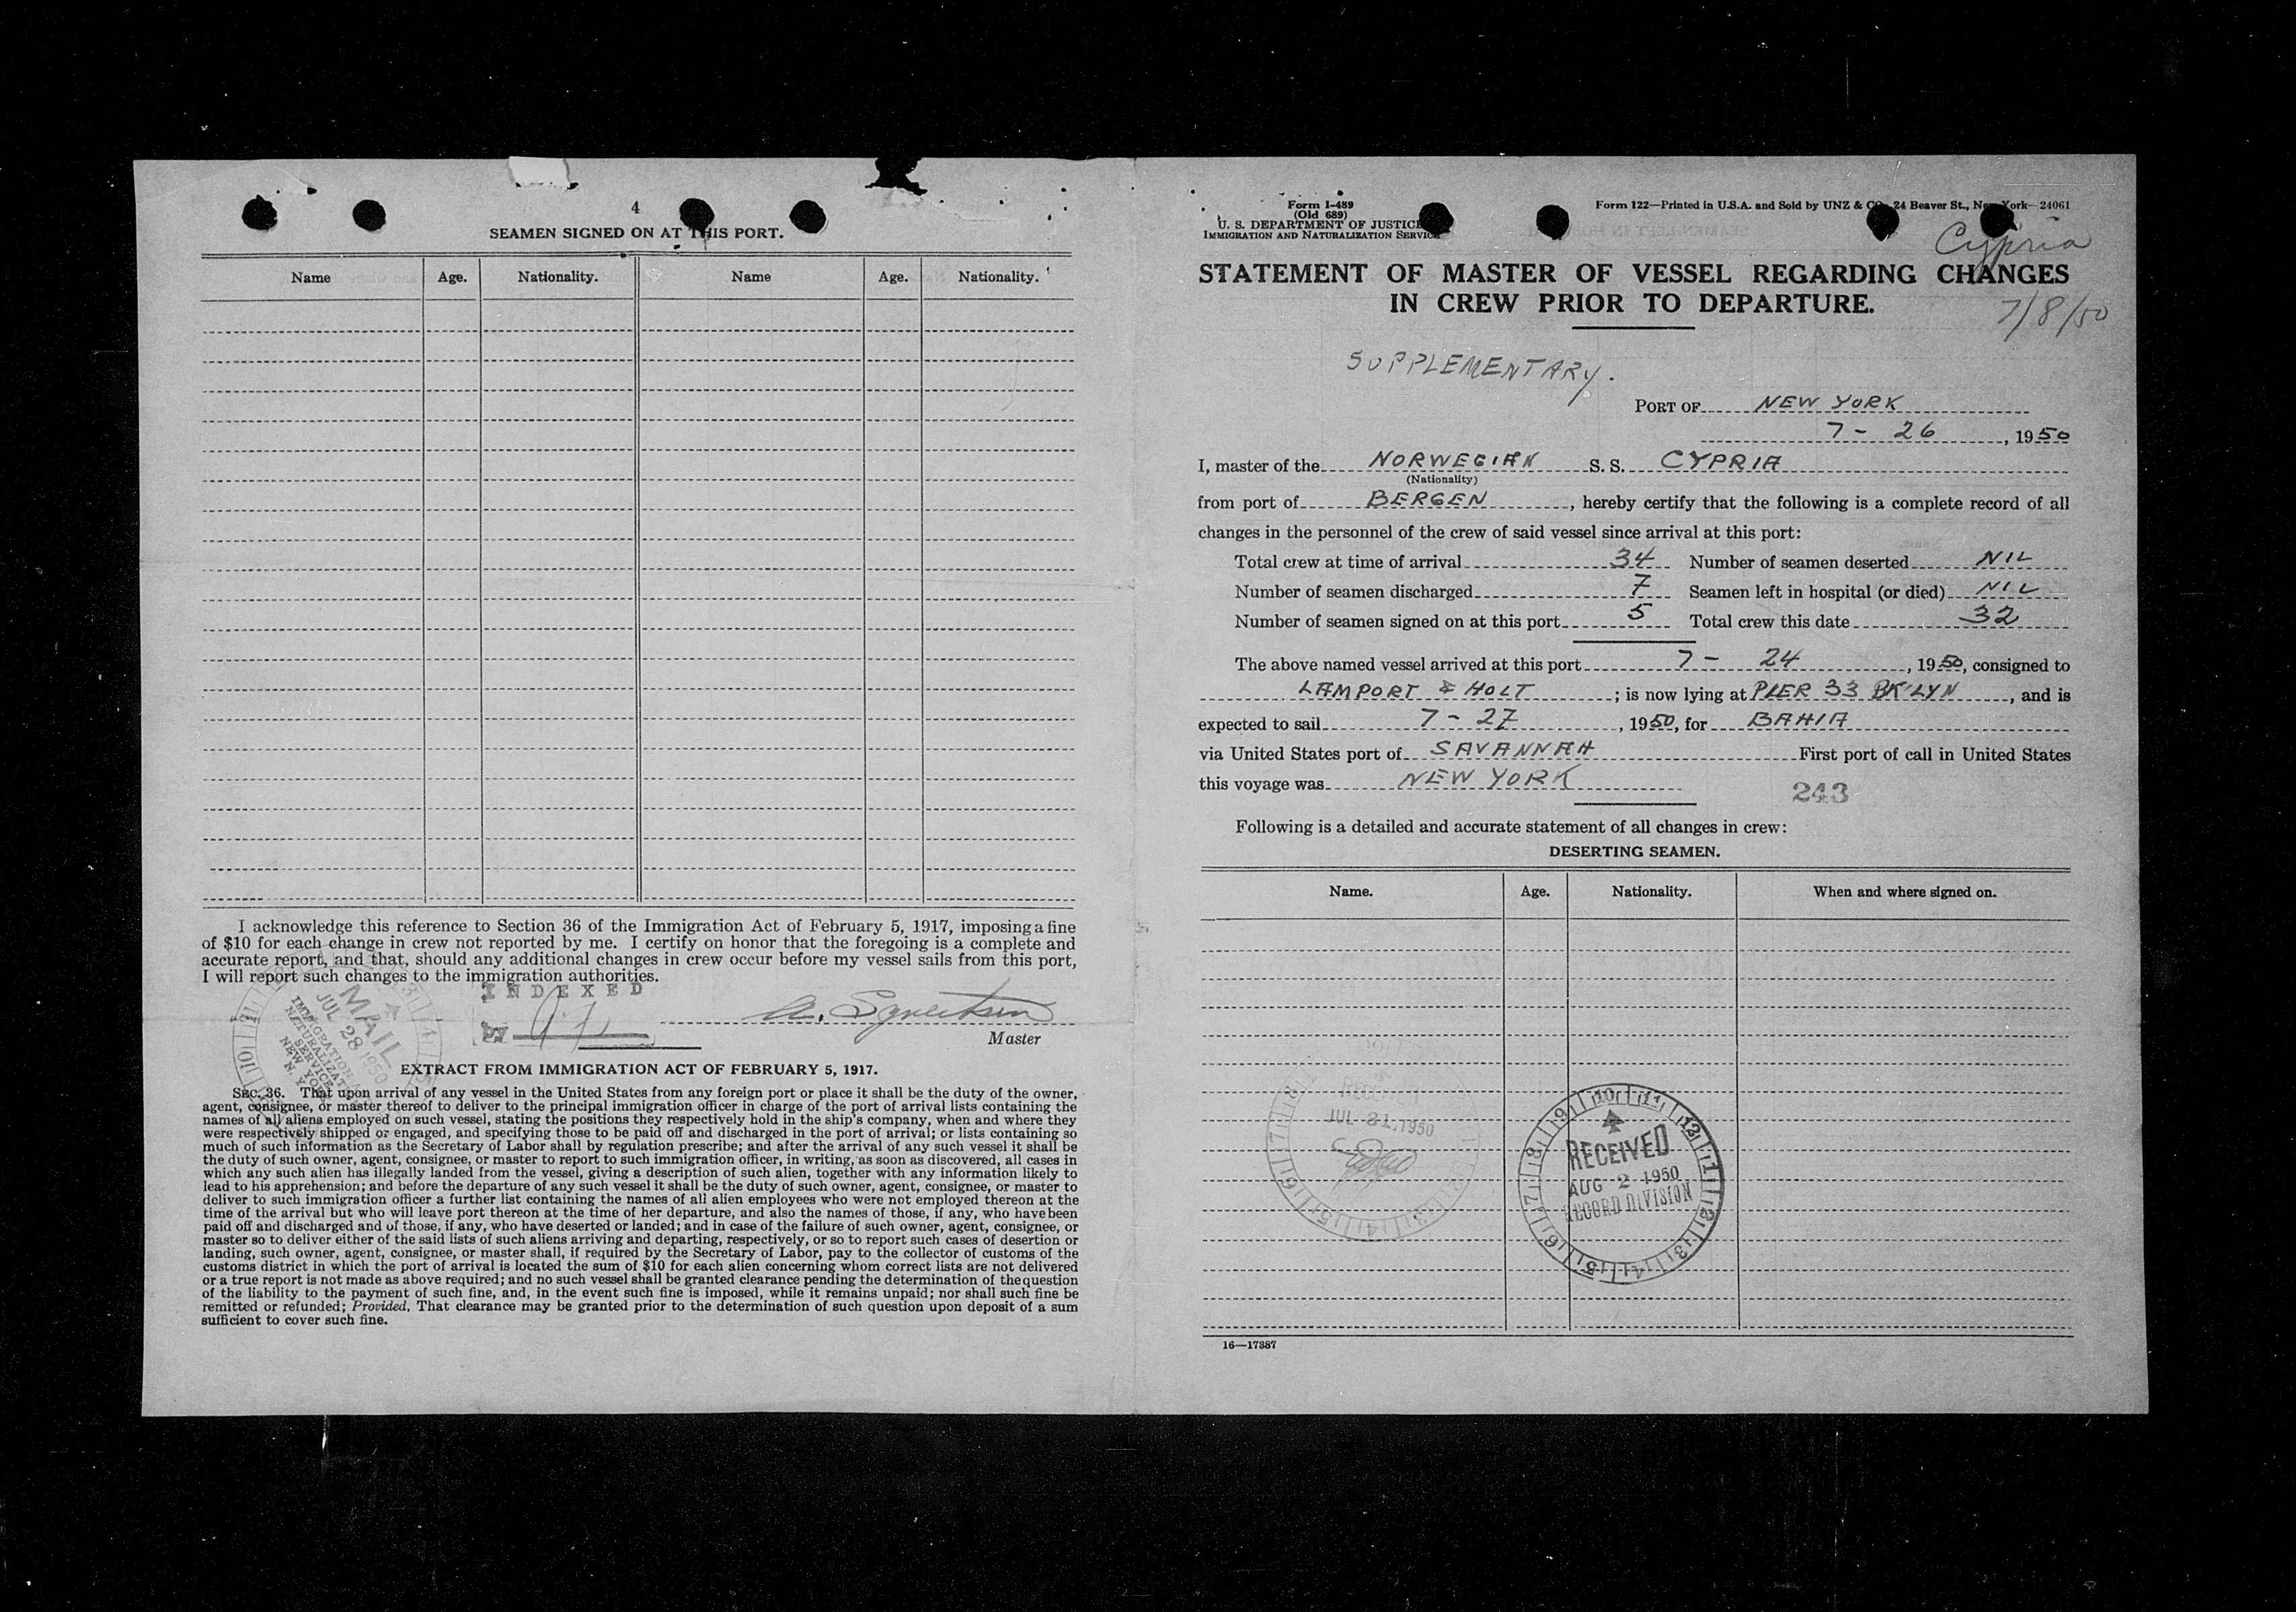 4
SEAMEN SIGNED ON AT THIS PORT.
Name Age. Nationality. Name Age. Nationality.
I acknowledge this reference to Section 36 of the Immigration Act of February 5, 1917, imposing a fine
of $10 for each change in crew not reported by me. I certify on honor that the foregoing is a complete and
accurate report, and that, should any additional changes in crew occur before my vessel sails from this port,
I will report such changes to the immigration authorities.
INDEXED
by
Master
MAIL
JUL 28 1950
IMMIGRATION
NATURALIZATION
SERVICE
NEW YORK
N. Y.
EXTRACT FROM IMMIGRATION ACT OF FEBRUARY 5, 1917.
SEC. 36. That upon arrival of any vessel in the United States from any foreign port or place it shall be the duty of the owner,
agent, consignee, or master thereof to deliver to the principal immigration officer in charge of the port of arrival lists containing the
names of all aliens employed on such vessel, stating the positions they respectively hold in the ship's company, when and where they
were respectively shipped or engaged, and specifying those to be paid off and discharged in the port of arrival; or lists containing so
much of such information as the Secretary of Labor shall by regulation prescribe; and after the arrival of any such vessel it shall be
the duty of such owner, agent, consignee, or master to report to such immigration officer, in writing, as soon as discovered, all cases in
which any such alien has illegally landed from the vessel, giving a description of such alien, together with any information likely to
lead to his apprehension; and before the departure of any such vessel it shall be the duty of such owner, agent, consignee, or master to
deliver to such immigration officer a further list containing the names of all alien employees who were not employed thereon at the
time of the arrival but who will leave port thereon at the time of her departure, and also the names of those, if any, who have been
paid off and discharged and of those, if any, who have deserted or landed; and in case of the failure of such owner, agent, consignee, or
master so to deliver either of the said lists of such aliens arriving and departing, respectively, or so to report such cases of desertion or
landing, such owner, agent, consignee, or master shall, if required by the Secretary of Labor, pay to the collector of customs of the
customs district in which the port of arrival is located the sum of $10 for each alien concerning whom correct lists are not delivered
or a true report is not made as above required; and no such vessel shall be granted clearance pending the determination of the question
of the liability to the payment of such fine, and, in the event such fine is imposed, while it remains unpaid; nor shall such fine be
remitted or refunded; Provided, That clearance may be granted prior to the determination of such question upon deposit of a sum
sufficient to cover such fine.
Form I-489
(Old 689)
U. S. DEPARTMENT OF JUSTICE
IMMIGRATION AND NATURALIZATION SERVICE
Form 122—Printed in U.S.A. and Sold by UNZ & CO., 24 Beaver St., New York—24061
Cypria
STATEMENT OF MASTER OF VESSEL REGARDING CHANGES
IN CREW PRIOR TO DEPARTURE.
7/8/50
SUPPLEMENTARY.
PORT OF NEW YORK
7 - 26, 1950
I, master of the NORWEGIAN S. S. CYPRIA
(Nationality)
from port of BERGEN, hereby certify that the following is a complete record of all
changes in the personnel of the crew of said vessel since arrival at this port:
Total crew at time of arrival 34 Number of seamen deserted NIL
Number of seamen discharged 7 Seamen left in hospital (or died) NIL
Number of seamen signed on at this port 5 Total crew this date 32
The above named vessel arrived at this port 7 - 24, 1950, consigned to
LAMPORT & HOLT; is now lying at PIER 33 BK'LYN, and is
expected to sail 7 - 27, 1950, for BAHIA
via United States port of SAVANNAH First port of call in United States
this voyage was NEW YORK
243
Following is a detailed and accurate statement of all changes in crew:
DESERTING SEAMEN.
Name. Age. Nationality. When and where signed on.
RECEIVED
JUL 31 1950
RECEIVED
AUG 2 1950
RECORD DIVISION
16—17387